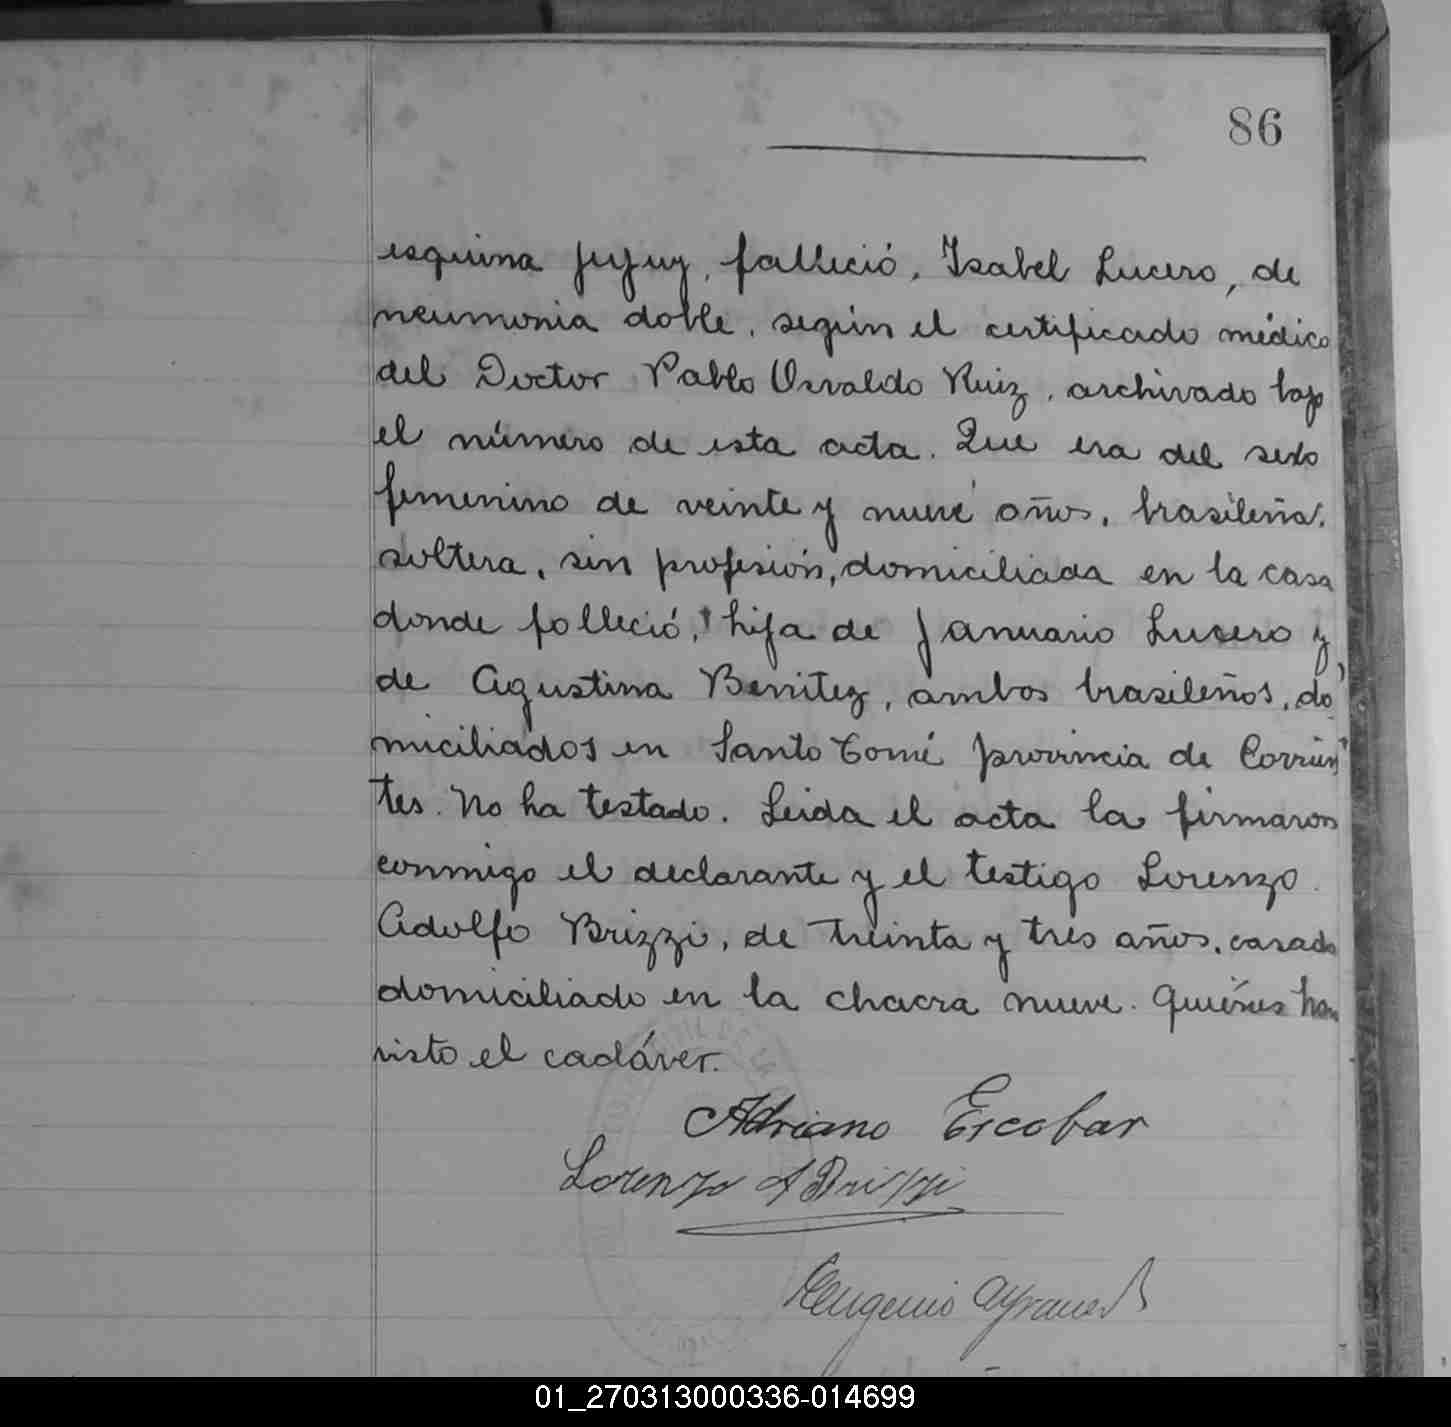 86
esquina Jujuy, falleció, Isabel Lucero, de
neumonia doble, según el certificado médico
del Doctor Pablo Osvaldo Ruiz, archivado bajo
el número de esta acta. Que era del sexo
femenino de veinte y nueve años, brasileña,
soltera, sin profesión, domiciliada en la casa
donde falleció, hija de Januario Lucero y
de Agustina Benitez, ambos brasileños, do
miciliados en Santo Tomé provincia de Corrien
tes. No ha testado. Leida el acta la firmaron
conmigo el declarante y el testigo Lorenzo
Adolfo Brizzi, de treinta y tres años, casado
domiciliado en la chacra nueve. Quiénes han
visto el cadáver.
Adriano Escobar
Lorenzo A Brizzi
Eugenio
01_270313000336-014699